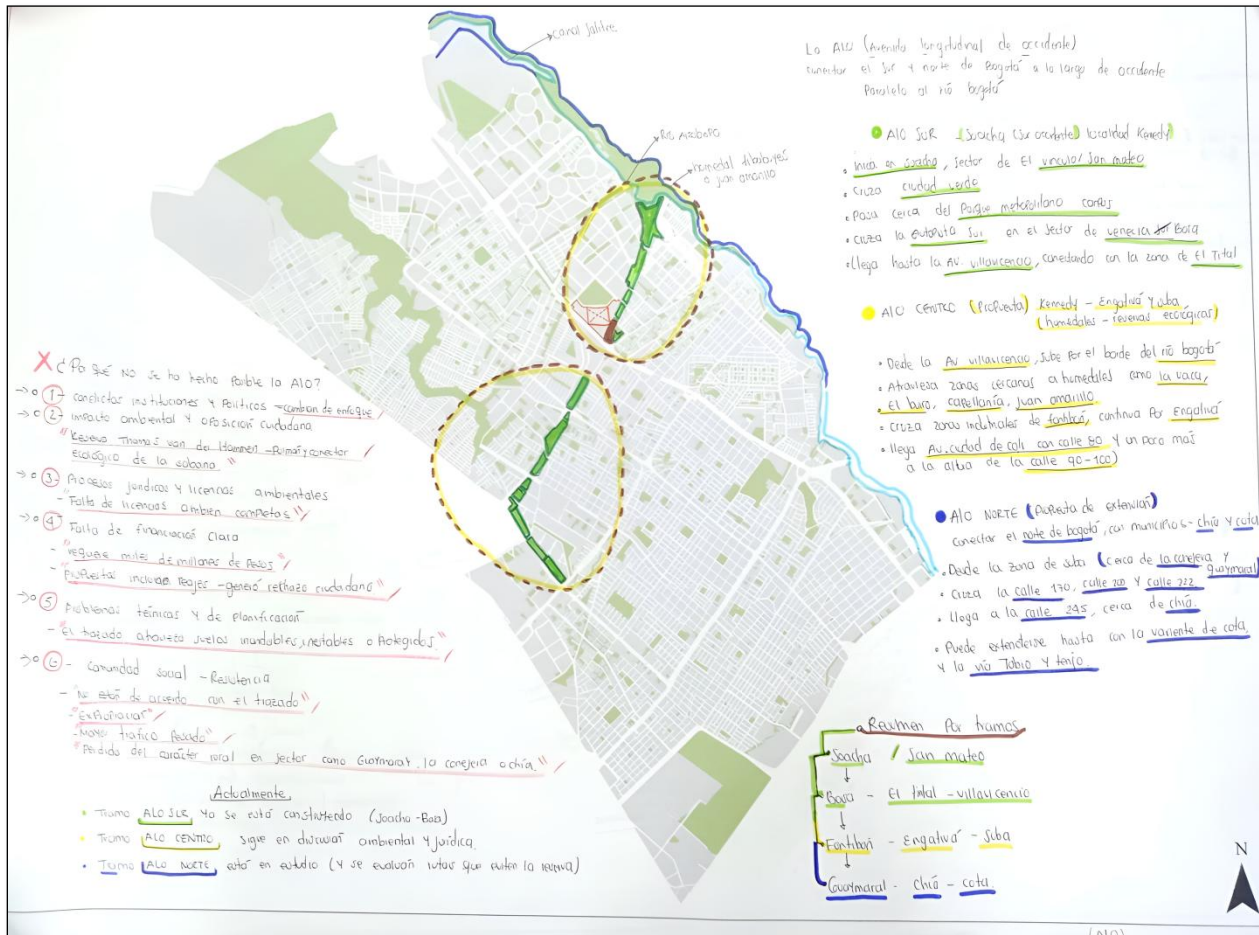 canal Salitre
Río Arzobispo
humedal tibabuyes
o juan amarillo
La ALO (Avenida longitudinal de occidente)
conectar el sur y norte de Bogotá a lo largo de occidente
Paralelo al río bogotá
ALO SUR - (Soacha (sur occidente) localidad Kenedy)
Inicia en Soacha, sector de El vinculo/ San mateo
Cruza ciudad verde
Pasa cerca del Parque metropolitano
Cruza la autopista Sur en el sector de venecia Bosa
Llega hasta la Av. villavicencio, conectando con la zona de El Tintal
ALO CENTRO (Propuesta) Kenedy - Engativá y suba
(humedales - reservas ecológicas)
Desde la Av villavicencio, sube por el borde del río bogotá
Atraviesa zonas cercanas a humedales como la vaca,
El burro, capellanía, juan amarillo.
Cruza zonas industriales de fontibón, continua Por Engativá
llega Av. ciudad de cali con calle 80 y un poco mas
a la altura de la calle 90-100)
ALO NORTE (Propuesta de extensión)
conectar el norte de bogotá, con municipios - chía y cota
Desde la zona de suba (cerca de la conejera y
guaymaral)
Cruza la calle 170, calle 200 y calle 222
llega a la calle 245, cerca de chía.
Puede extenderse hasta con la variente de cota
y la vía Tabio y tenjo.
X ¿Por qué NO se ha hecho Posible la ALO?
1 - conflictos instituciones y Políticos - cambian de enfoque
2 - impacto ambiental y oposición ciudadana
"Reserva Thomas van der Hammen - Pulmón y conector
ecológico de la sabana"
3 - Procesos jurídicos y licencias ambientales
- "Falta de licencias ambien completas"
4 - Falta de financiación clara
- "requiere miles de millones de pesos"
- "Propuestas incluían Peajes - generó rechazo ciudadano"
5 Problemas técnicos y de planificación
- "El trazado atraviesa suelos inundables, inestables o Protegidos."
6 - comunidad social - Resistencia
- "No están de acuerdo con el trazado"
- "Expropiacias"
- Mayor trafico Pesado"
- "Perdida del carácter rural en sector como Guaymaral, la conejera o chía."
Actualmente
Tramo ALO SUR, ya se está construyendo (Soacha - Bosa)
Tramo ALO CENTRO, sigue en discusión ambiental y jurídica.
Tramo ALO NORTE, está en estudio (y se evalúan rutas que eviten la reserva)
Resumen Por tramos
Soacha / San mateo
Bosa - El tintal - villavicencio
Fontibón - Engativá - Suba
Guaymaral - chía - cota
N
(ALO)